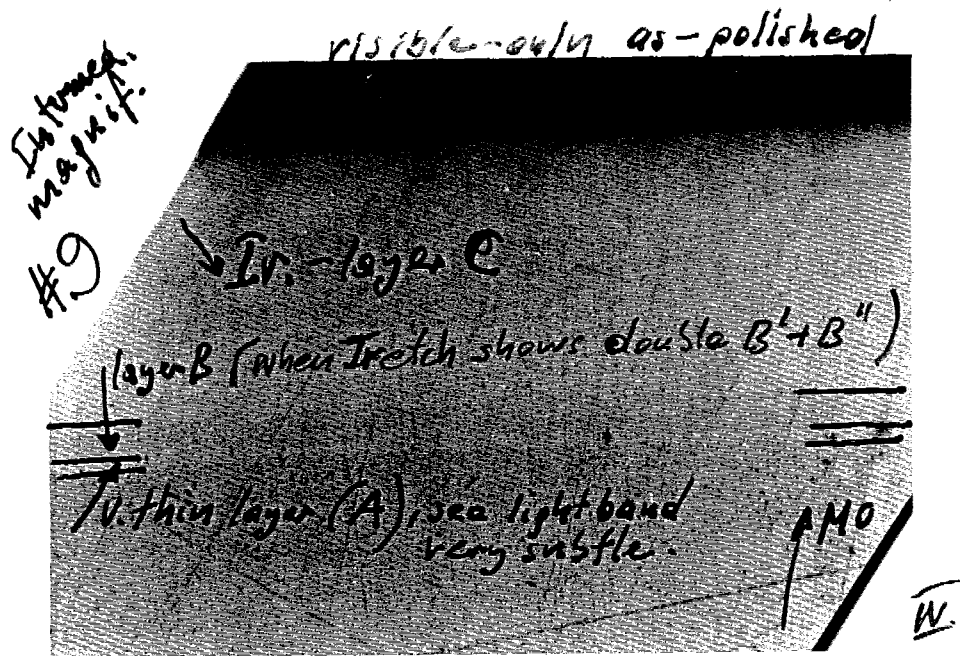 visible-only as-polished
Intermed.
magnif.
#9
Ir.-layer C
layer B (when I retch shows double B' + B")
V. thin layer (A), see light band
very subtle.
MO
W.